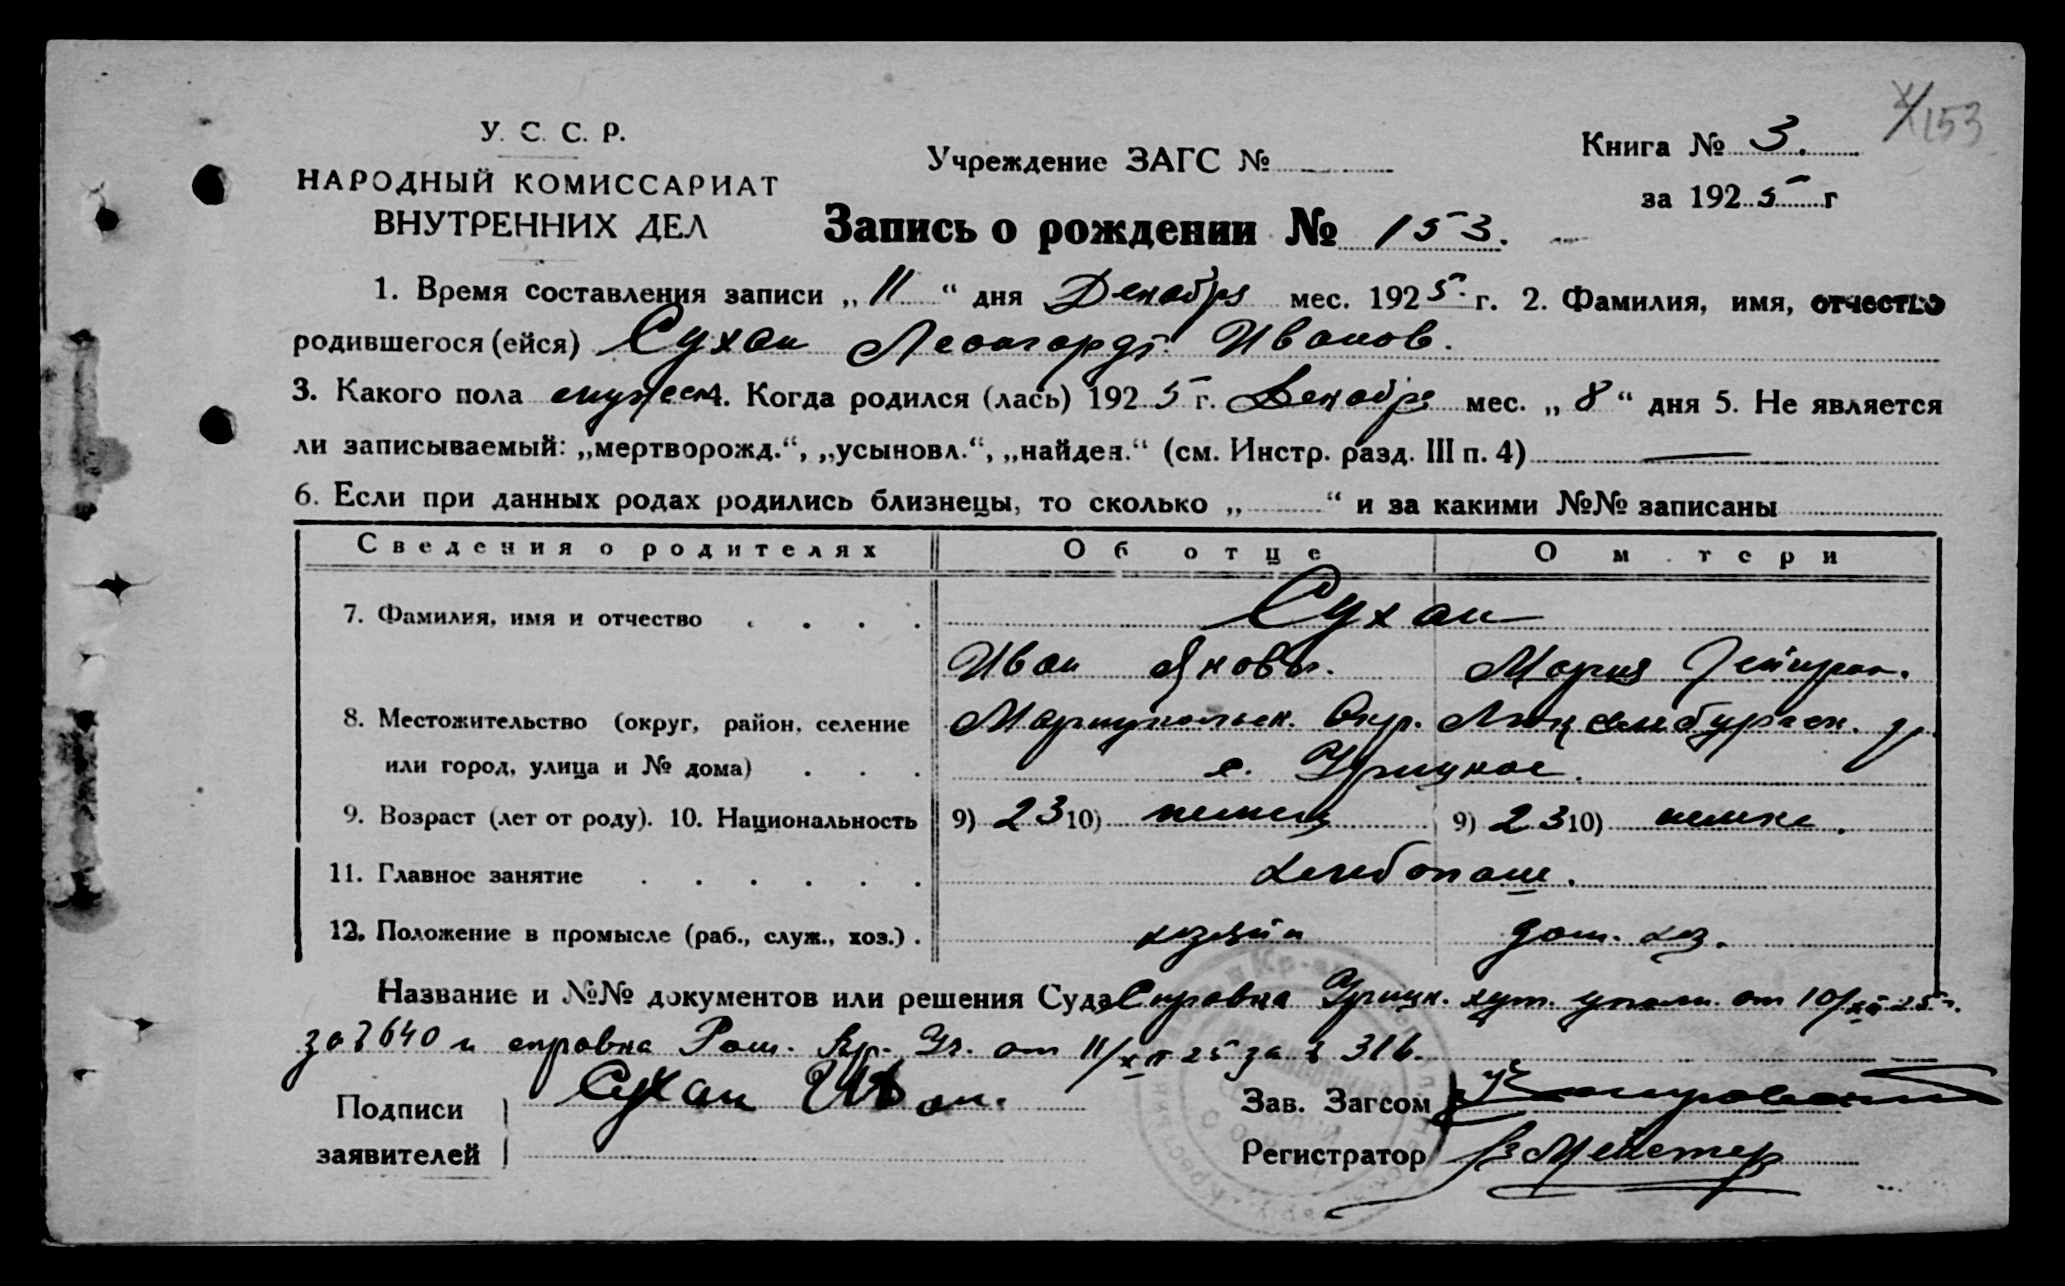 У. С. С. Р.
НАРОДНЫЙ КОМИССАРИАТ
ВНУТРЕННИХ ДЕЛ
Учреждение ЗАГС №
Книга № 3.
за 1925 г
153
Запись о рождении № 153.
1. Время составления записи „11“ дня Декабря мес. 1925 г. 2. Фамилия, имя, отчество
родившегося (ейся) Сухан Леонгардт Иванов.
3. Какого пола мужеск 4. Когда родился (лась) 1925 г. Декабря мес. „8“ дня 5. Не является
ли записываемый: „мертворожд.“, „усыновл.“, „найден.“ (см. Инстр. разд. III п. 4) —
6. Если при данных родах родились близнецы, то сколько „ “ и за какими №№ записаны
Сведения о родителях Об отце О м тери
7. Фамилия, имя и отчество Сухан
Иван Яковл. Мария
8. Местожительство (округ, район, селение Мариупольск. Окр. Люксембургск. р.
или город, улица и № дома) с. Урицкое.
9. Возраст (лет от роду). 10. Национальность 9) 23 10) немец 9) 23 10) немка.
11. Главное занятие хлебопаш.
12. Положение в промысле (раб., служ., хоз.) хозяин дом. хоз.
Название и №№ документов или решения Суда Справка Урицк. хут. уполн. от 10/XII 25 г.
за № 640 и справка Р. Уч. от 11/XII 25 за № 316.
Подписи Сухан Иван. Зав. Загсом
заявителей Регистратор Мейстер